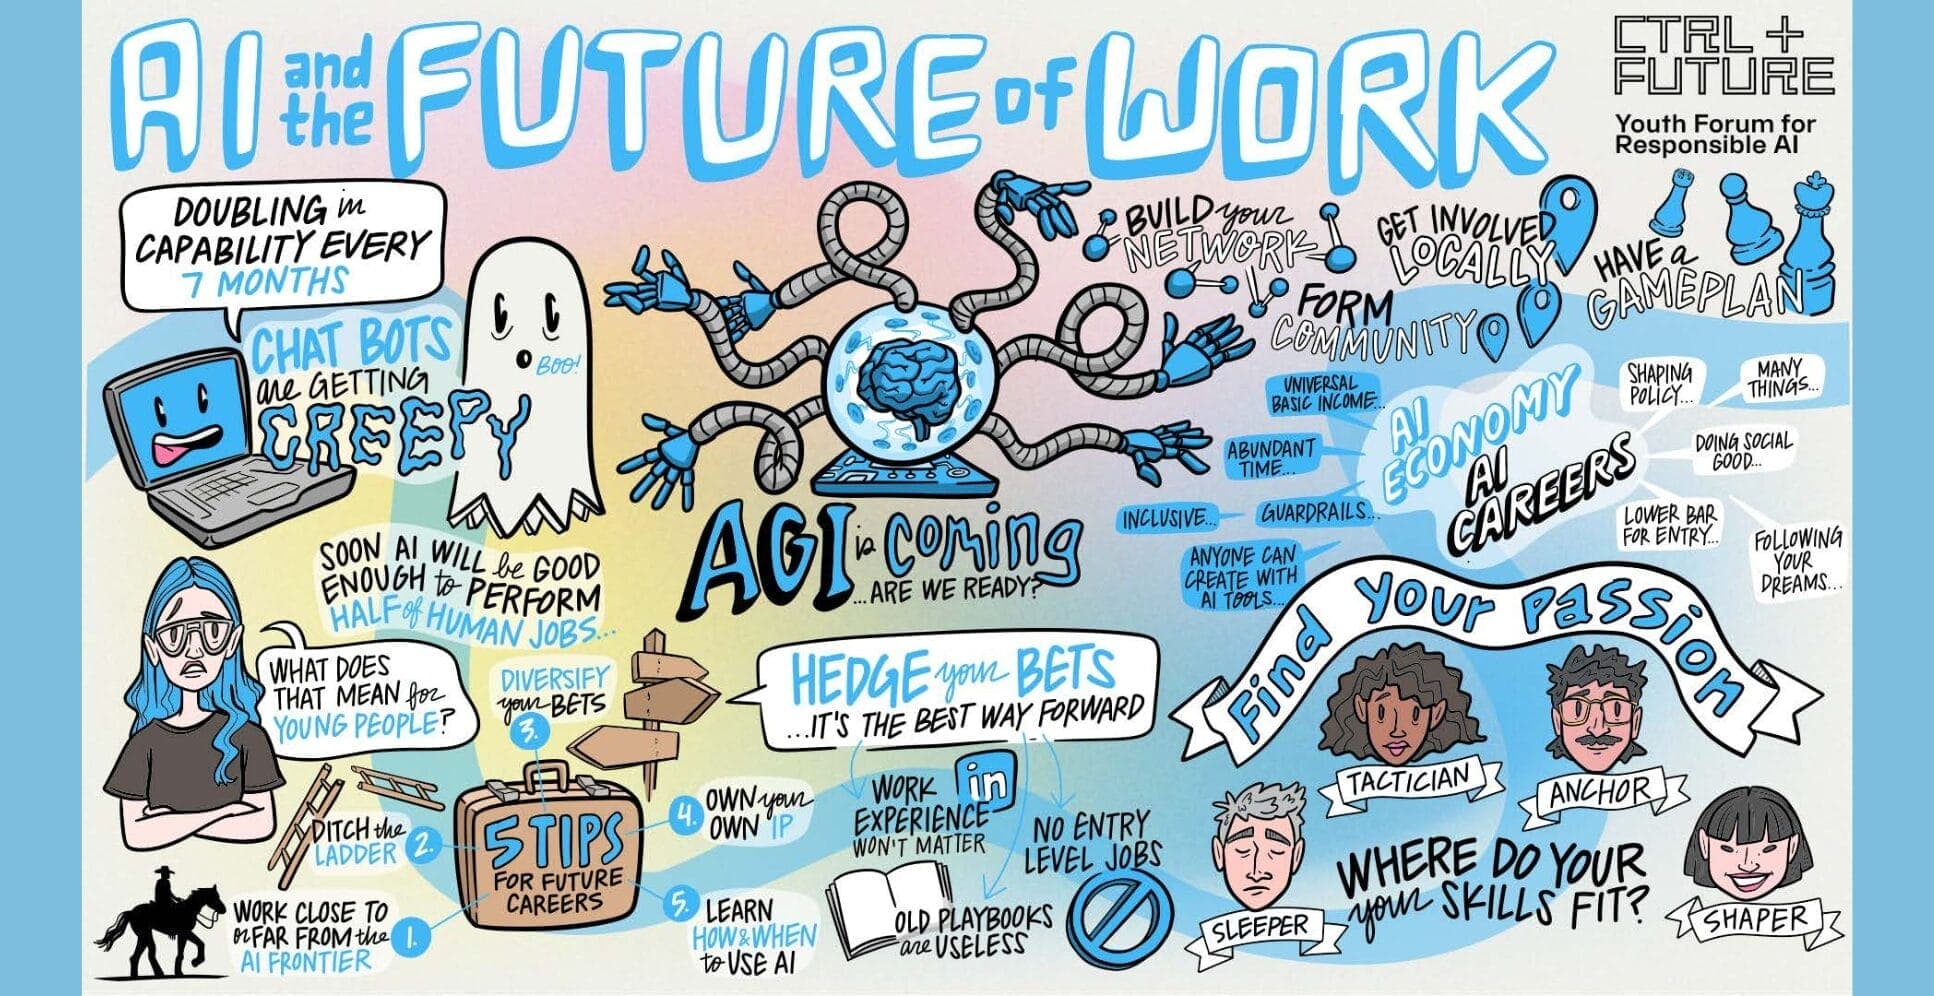 AI and the FUTURE of WORK
CTRL +
FUTURE
Youth Forum for
Responsible AI
DOUBLING in
CAPABILITY EVERY
7 MONTHS
CHAT BOTS
are GETTING
CREEPY
BOO!
BUILD your
NETWORK
GET INVOLVED
LOCALLY
HAVE a
GAMEPLAN
FORM
COMMUNITY
AGI is coming
...ARE WE READY?
AI
ECONOMY
UNIVERSAL
BASIC INCOME...
ABUNDANT
TIME...
INCLUSIVE...
GUARDRAILS...
ANYONE CAN
CREATE WITH
AI TOOLS...
AI
CAREERS
SHAPING
POLICY...
MANY
THINGS...
DOING SOCIAL
GOOD...
LOWER BAR
FOR ENTRY...
FOLLOWING
YOUR
DREAMS...
SOON AI WILL be GOOD
ENOUGH to PERFORM
HALF of HUMAN JOBS...
WHAT DOES
THAT MEAN for
YOUNG PEOPLE?
5 TIPS
FOR FUTURE
CAREERS
1.
WORK CLOSE TO
or FAR FROM the
AI FRONTIER
2.
DITCH the
LADDER
3.
DIVERSIFY
your BETS
4.
OWN your
OWN IP
5.
LEARN
HOW & WHEN
to USE AI
HEDGE your BETS
...IT'S THE BEST WAY FORWARD
in
WORK
EXPERIENCE
WON'T MATTER
OLD PLAYBOOKS
are USELESS
NO ENTRY
LEVEL JOBS
Find your passion
TACTICIAN
ANCHOR
SLEEPER
SHAPER
WHERE DO YOUR
your SKILLS FIT?